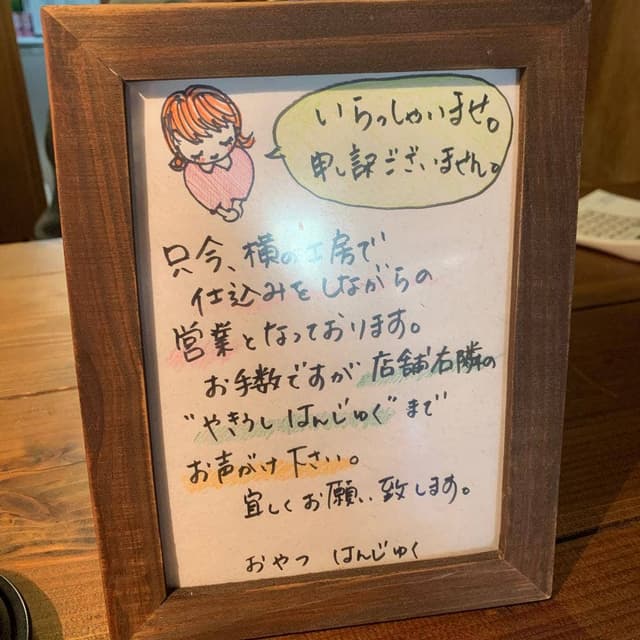 いらっしゃいませ。
申し訳ございません。
只今、横の工房で
仕込みをしながらの
営業となっております。
お手数ですが店舗右隣の
"やきうし はんじゅく"まで
お声がけ下さい。
宜しくお願い致します。
おやつ はんじゅく